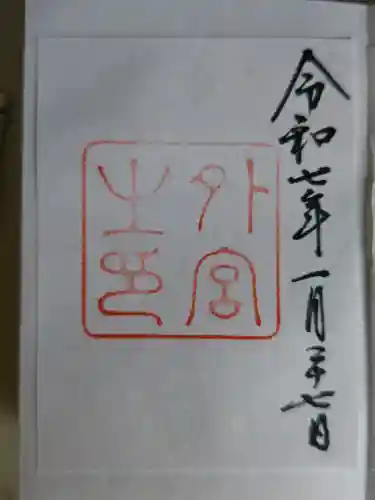 令和七年一月二十七日
外宮
之印